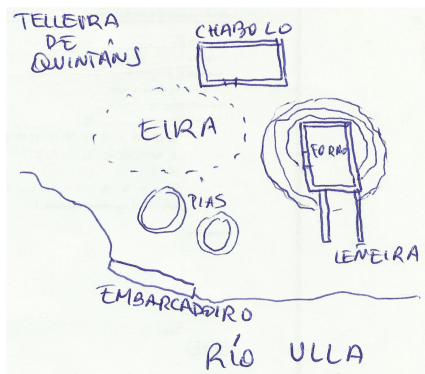 TELLEIRA
DE
QUINTÁNS
CHABOLO
EIRA
FORNO
PIAS
LEÑEIRA
EMBARCADOIRO
RÍO ULLA